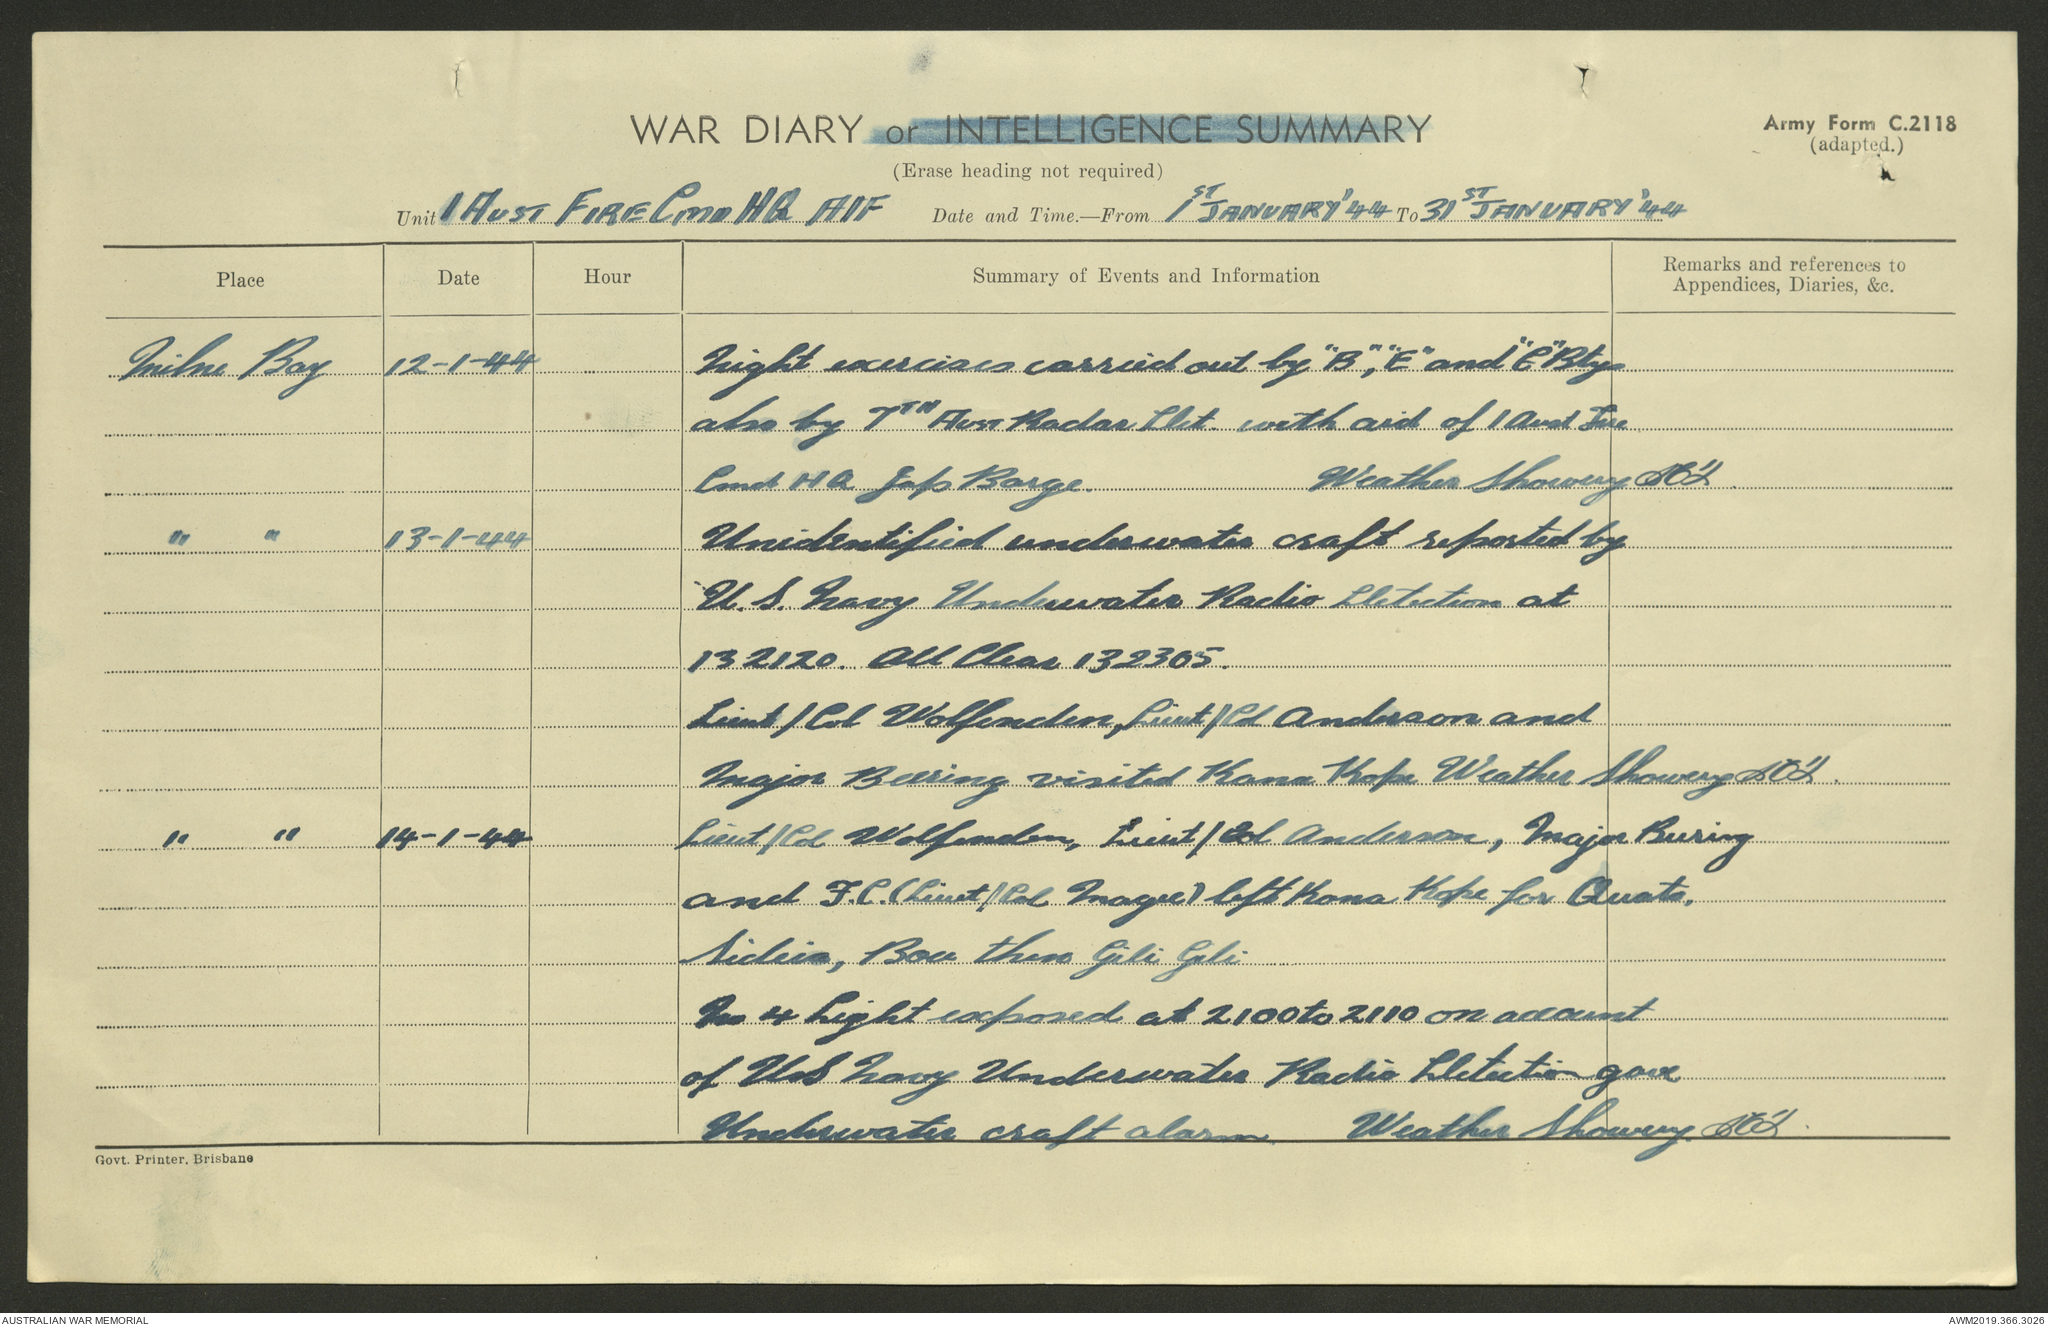 WAR DIARY or INTELLIGENCE SUMMARY
Army Form C.2118
(adapted.)
(Erase heading not required)
Unit 1 AUST FIRE CMD HQ AIF Date and Time.—From 1ST JANUARY '44 To 31ST JANUARY '44
Place Date Hour Summary of Events and Information Remarks and references to Appendices, Diaries, &c.
Milne Bay 12-1-44 Night exercises carried out by "B", "E" and "C" Btys
also by 7TH AUST Radar Det. with aid of 1 Aust Fire
Cmd HQ Jap Barge. Weather Showery
" " 13-1-44 Unidentified underwater craft reported by
U.S. Navy Underwater Radio Detection at
132120. All Clear 132305.
Lieut/Col Wolfenden, Lieut/Col Anderson and
Major Beering visited Kana Kope Weather Showery
" " 14-1-44 Lieut/Col Wolfenden, Lieut/Col Anderson, Major Buring
and F.C. (Lieut/Col Magee) left Kana Kope for Quato,
Sideia, Bou then Gili Gili
No 4 Light exposed at 2100 to 2110 on account
of U.S Navy Underwater Radio Detection gave
Underwater craft alarm. Weather Showery
Govt. Printer, Brisbane
AUSTRALIAN WAR MEMORIAL
AWM2019.366.3026